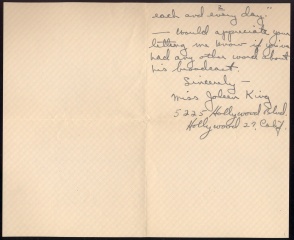 each and every day."
— Would appreciate your
letting me know if
had any other word about
his broadcast.
Sincerely —
Miss Joleen King
5225 Hollywood Blvd.
Hollywood 27, Calif.